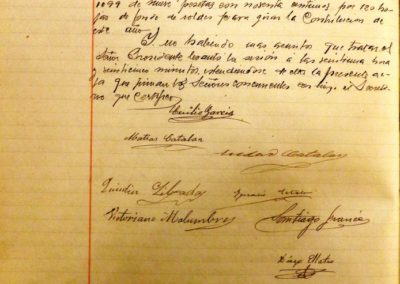 1099 de nueve pesetas con noventa centimos por 100 ho-
jas de fondo de valdes para girar la Contribucion de
este año.
Y no habiendo mas asuntos que tratar el
Señor Presidente levantó la sesión a las veintiuna
veinticinco minutos, extendiendose de ella la presente ac-
ta que firman los Señores concurrentes conmigo el Secreta-
rio que certifico.
Emilio Garcia
Matias Catalan
Catalan
Quintin Librada Ignacio
Victoriano Malumbres Santiago Francés
Mateo